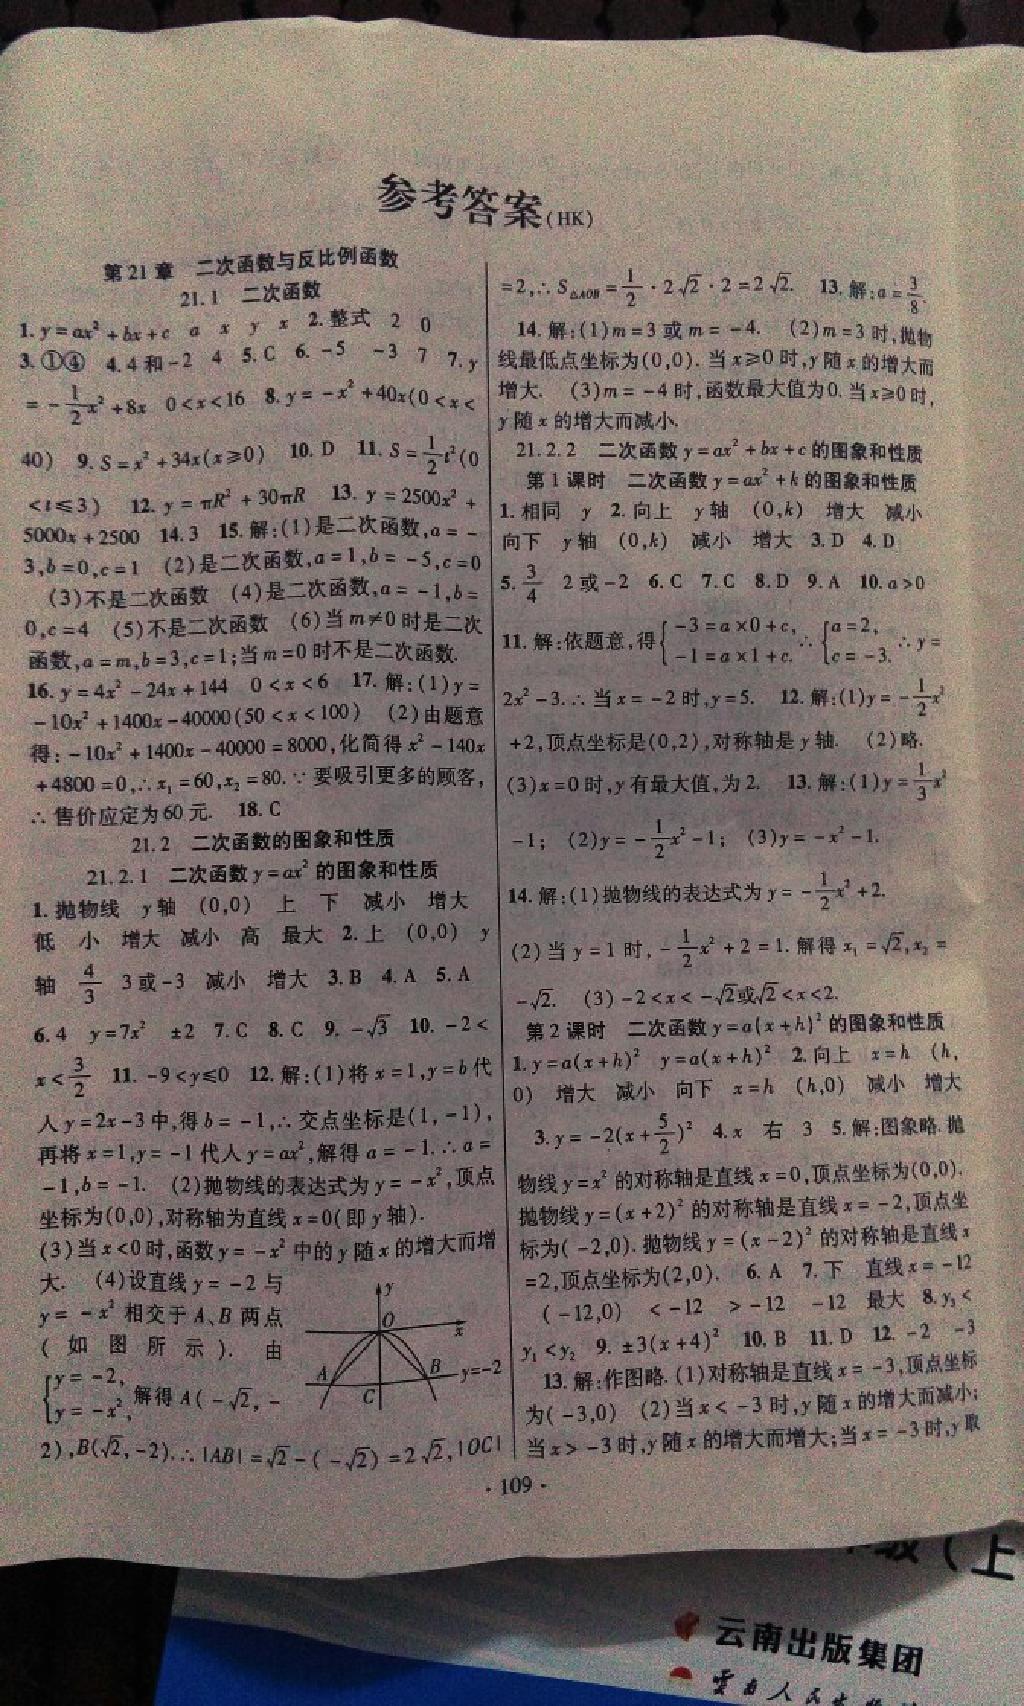 参考答案(HK)
第21章 二次函数与反比例函数
21.1 二次函数
1. y=ax²+bx+c a x y x 2. 整式 2 0
3. ①④ 4. 4和-2 4 5. C 6. -5 -3 7 7. y
=-1/2x²+8x 0<x<16 8. y=-x²+40x(0<x<
40) 9. S=x²+34x(x≥0) 10. D 11. S=1/2t²(0
<t≤3) 12. y=πR²+30πR 13. y=2500x²+
5000x+2500 14. 3 15. 解:(1)是二次函数,a=-
3,b=0,c=1 (2)是二次函数,a=1,b=-5,c=0
(3)不是二次函数 (4)是二次函数,a=-1,b=
0,c=4 (5)不是二次函数 (6)当m≠0时是二次
函数,a=m,b=3,c=1;当m=0时不是二次函数.
16. y=4x²-24x+144 0<x<6 17. 解:(1)y=
-10x²+1400x-40000(50<x<100) (2)由题意
得:-10x²+1400x-40000=8000,化简得x²-140x
+4800=0,∴x₁=60,x₂=80.∵要吸引更多的顾客,
∴售价应定为60元. 18. C
21.2 二次函数的图象和性质
21.2.1 二次函数y=ax²的图象和性质
1. 抛物线 y轴 (0,0) 上 下 减小 增大
低 小 增大 减小 高 最大 2. 上 (0,0) y
轴 4/3 3或-3 减小 增大 3. B 4. A 5. A
6. 4 y=7x² ±2 7. C 8. C 9. -√3 10. -2<
x<3/2 11. -9<y≤0 12. 解:(1)将x=1,y=b代
入y=2x-3中,得b=-1,∴交点坐标是(1,-1),
再将x=1,y=-1代入y=ax²,解得a=-1.∴a=
-1,b=-1. (2)抛物线的表达式为y=-x²,顶点
坐标为(0,0),对称轴为直线x=0(即y轴).
(3)当x<0时,函数y=-x²中的y随x的增大而增
大. (4)设直线y=-2与
y=-x²相交于A、B两点
(如图所示). 由
{y=-2,
y=-x², 解得A(-√2,-
y
O
x
A
B
y=-2
C
2),B(√2,-2).∴|AB|=√2-(-√2)=2√2,|OC|
=2,∴S△AOB=1/2·2√2·2=2√2. 13. 解:a=3/8.
14. 解:(1)m=3或m=-4. (2)m=3时,抛物
线最低点坐标为(0,0).当x≥0时,y随x的增大而
增大. (3)m=-4时,函数最大值为0.当x≥0时,
y随x的增大而减小.
21.2.2 二次函数y=ax²+bx+c的图象和性质
第1课时 二次函数y=ax²+k的图象和性质
1. 相同 y 2. 向上 y轴 (0,k) 增大 减小
向下 y轴 (0,k) 减小 增大 3. D 4. D
5. 3/4 2或-2 6. C 7. C 8. D 9. A 10. a>0
11. 解:依题意,得{-3=a×0+c, -1=a×1+c. ∴{a=2, c=-3. ∴y=
2x²-3.∴当x=-2时,y=5. 12. 解:(1)y=-1/2x²
+2,顶点坐标是(0,2),对称轴是y轴. (2)略.
(3)x=0时,y有最大值,为2. 13. 解:(1)y=1/3x²
-1; (2)y=-1/2x²-1; (3)y=-x²-1.
14. 解:(1)抛物线的表达式为y=-1/2x²+2.
(2)当y=1时,-1/2x²+2=1.解得x₁=√2,x₂=
-√2. (3)-2<x<-√2或√2<x<2.
第2课时 二次函数y=a(x+h)²的图象和性质
1. y=a(x+h)² y=a(x+h)² 2. 向上 x=h (h,
0) 增大 减小 向下 x=h (h,0) 减小 增大
3. y=-2(x+5/2)² 4. x 右 3 5. 解:图象略.抛
物线y=x²的对称轴是直线x=0,顶点坐标为(0,0).
抛物线y=(x+2)²的对称轴是直线x=-2,顶点坐
标为(-2,0).抛物线y=(x-2)²的对称轴是直线x
=2,顶点坐标为(2,0). 6. A 7. 下 直线x=-12
(-12,0) <-12 >-12 -12 最大 8. y₃<
y₁<y₂ 9. ±3(x+4)² 10. B 11. D 12. -2 -3
13. 解:作图略.(1)对称轴是直线x=-3,顶点坐标
为(-3,0) (2)当x<-3时,y随x的增大而减小;
当x>-3时,y随x的增大而增大;当x=-3时,y取
·109·
级(上
云南出版集团
云南人民出版